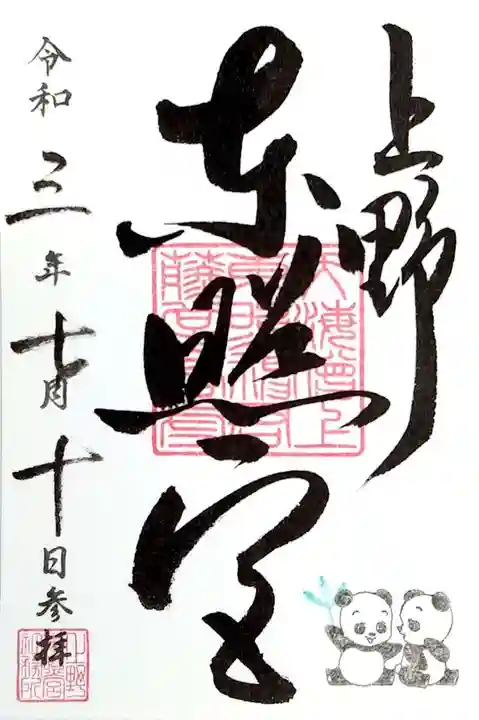 上野
東照宮
令和三年十月十日参拝